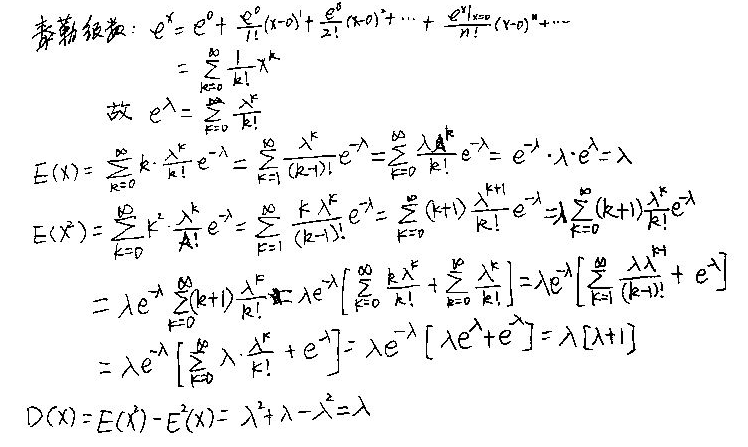 泰勒级数: e^x = e^0 + e^0/1!(x-0)^1 + e^0/2!(x-0)^2 + ⋯ + e^x|_{x=0}/n!(x-0)^n + ⋯
= ∑_{k=0}^{∞} 1/k! x^k
故 e^λ = ∑_{k=0}^{∞} λ^k/k!
E(X) = ∑_{k=0}^{∞} k·λ^k/k! e^{-λ} = ∑_{k=1}^{∞} λ^k/(k-1)! e^{-λ} = ∑_{k=0}^{∞} λλ^k/k! e^{-λ} = e^{-λ}·λ·e^λ = λ
E(X^2) = ∑_{k=0}^{∞} k^2·λ^k/k! e^{-λ} = ∑_{k=1}^{∞} kλ^k/(k-1)! e^{-λ} = ∑_{k=0}^{∞} (k+1) λ^{k+1}/k! e^{-λ} = λ∑_{k=0}^{∞} (k+1) λ^k/k! e^{-λ}
= λe^{-λ} ∑_{k=0}^{∞} (k+1) λ^k/k! = λe^{-λ} [∑_{k=0}^{∞} kλ^k/k! + ∑_{k=0}^{∞} λ^k/k!] = λe^{-λ} [∑_{k=1}^{∞} λλ^{k-1}/(k-1)! + e^{-λ}]
= λe^{-λ} [∑_{k=0}^{∞} λ·λ^k/k! + e^{-λ}] = λe^{-λ} [λe^λ + e^{-λ}] = λ[λ+1]
D(X) = E(X^2) - E^2(X) = λ^2 + λ - λ^2 = λ